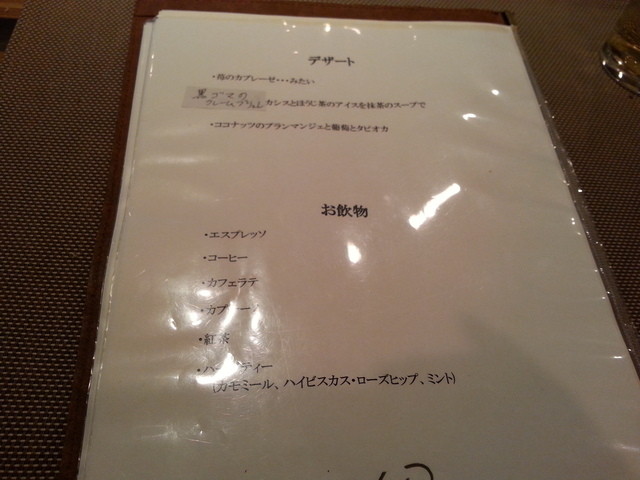 デザート
・苺のカプレーゼ・・・みたい
黒ゴマの
クレームブリュレ カシスとほうじ茶のアイスを抹茶のスープで
・ココナッツのブランマンジェと葡萄とタピオカ
お飲物
・エスプレッソ
・コーヒー
・カフェラテ
・カプ
・紅茶
・ハ ティー
(カモミール、ハイビスカス・ローズヒップ、ミント)